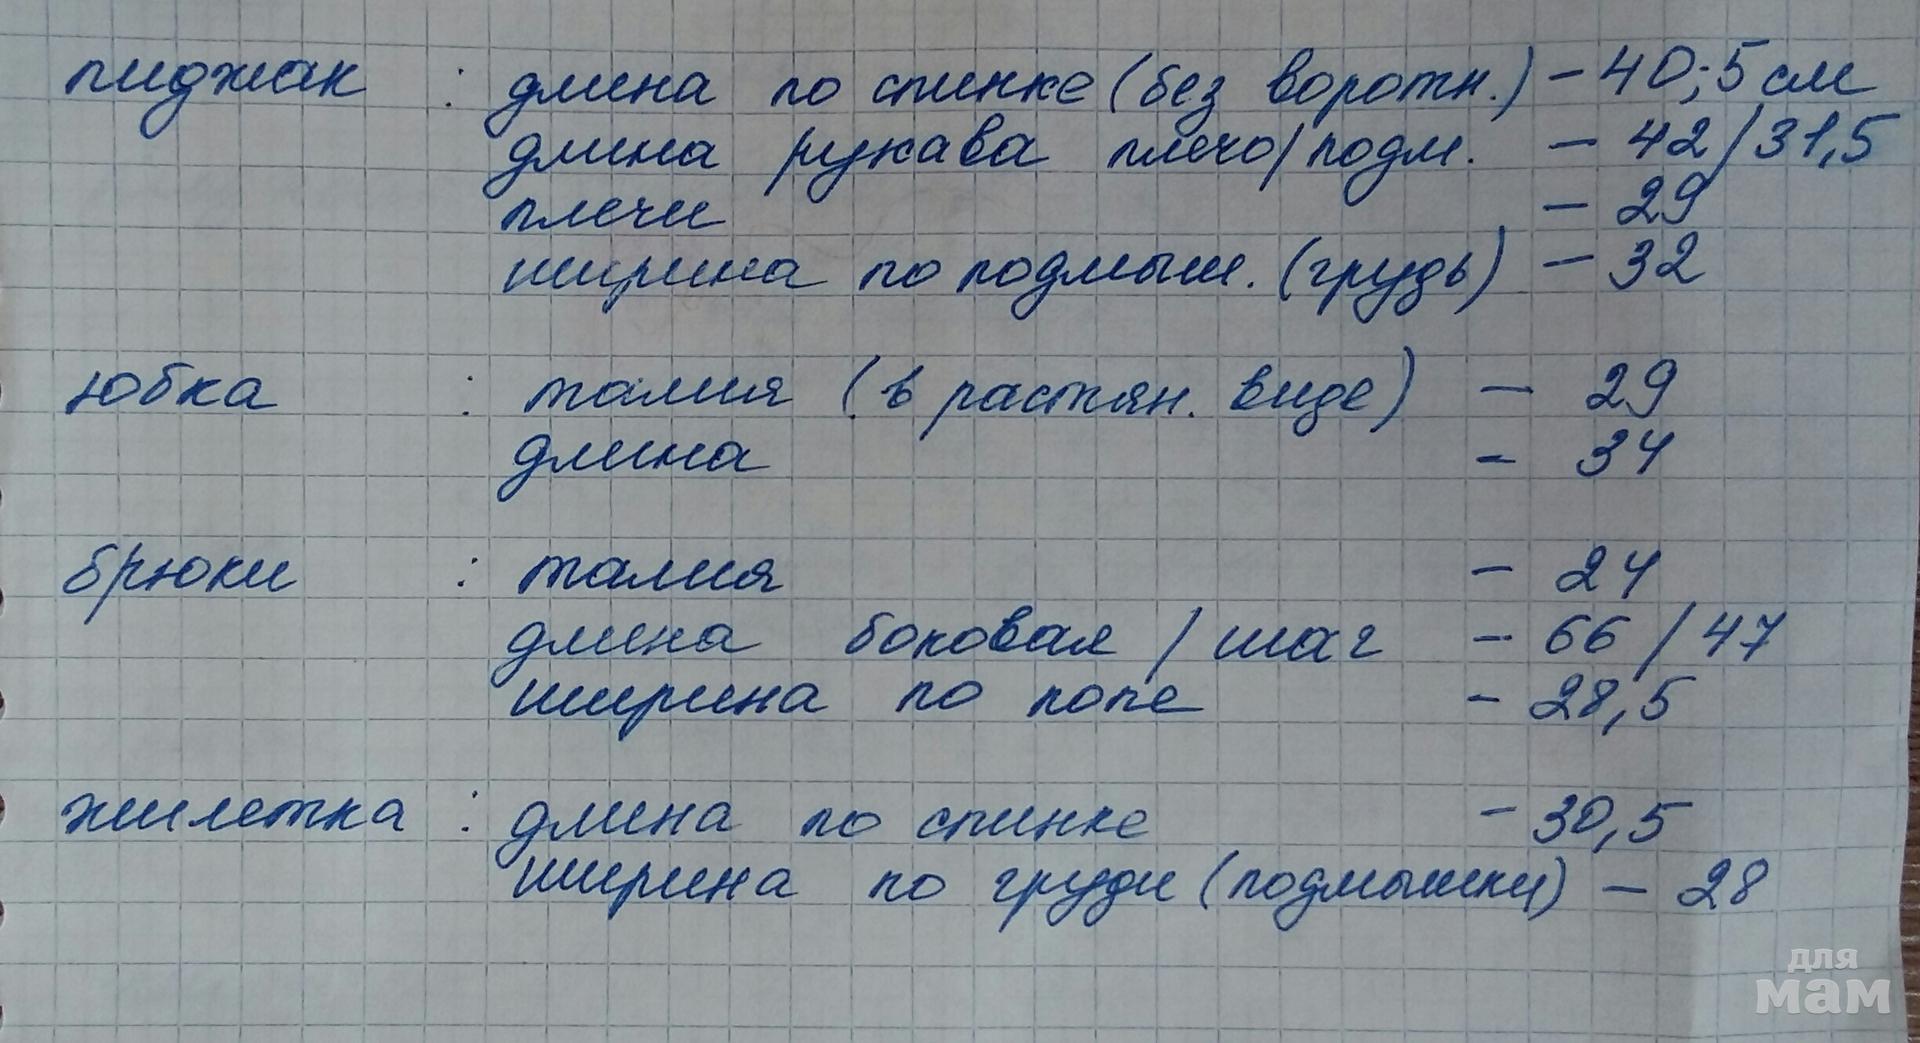 пиджак : длина по спинке (без воротн.) – 40,5 см
длина рукава плечо/подм. – 42/31,5
плечи – 29
ширина по подмыш. (грудь) – 32
юбка : талия (в растян. виде) – 29
длина – 34
брюки : талия – 24
длина боковая / шаг – 66/47
ширина по попе – 28,5
жилетка : длина по спинке – 30,5
ширина по груди (подмышки) – 28
для
мам